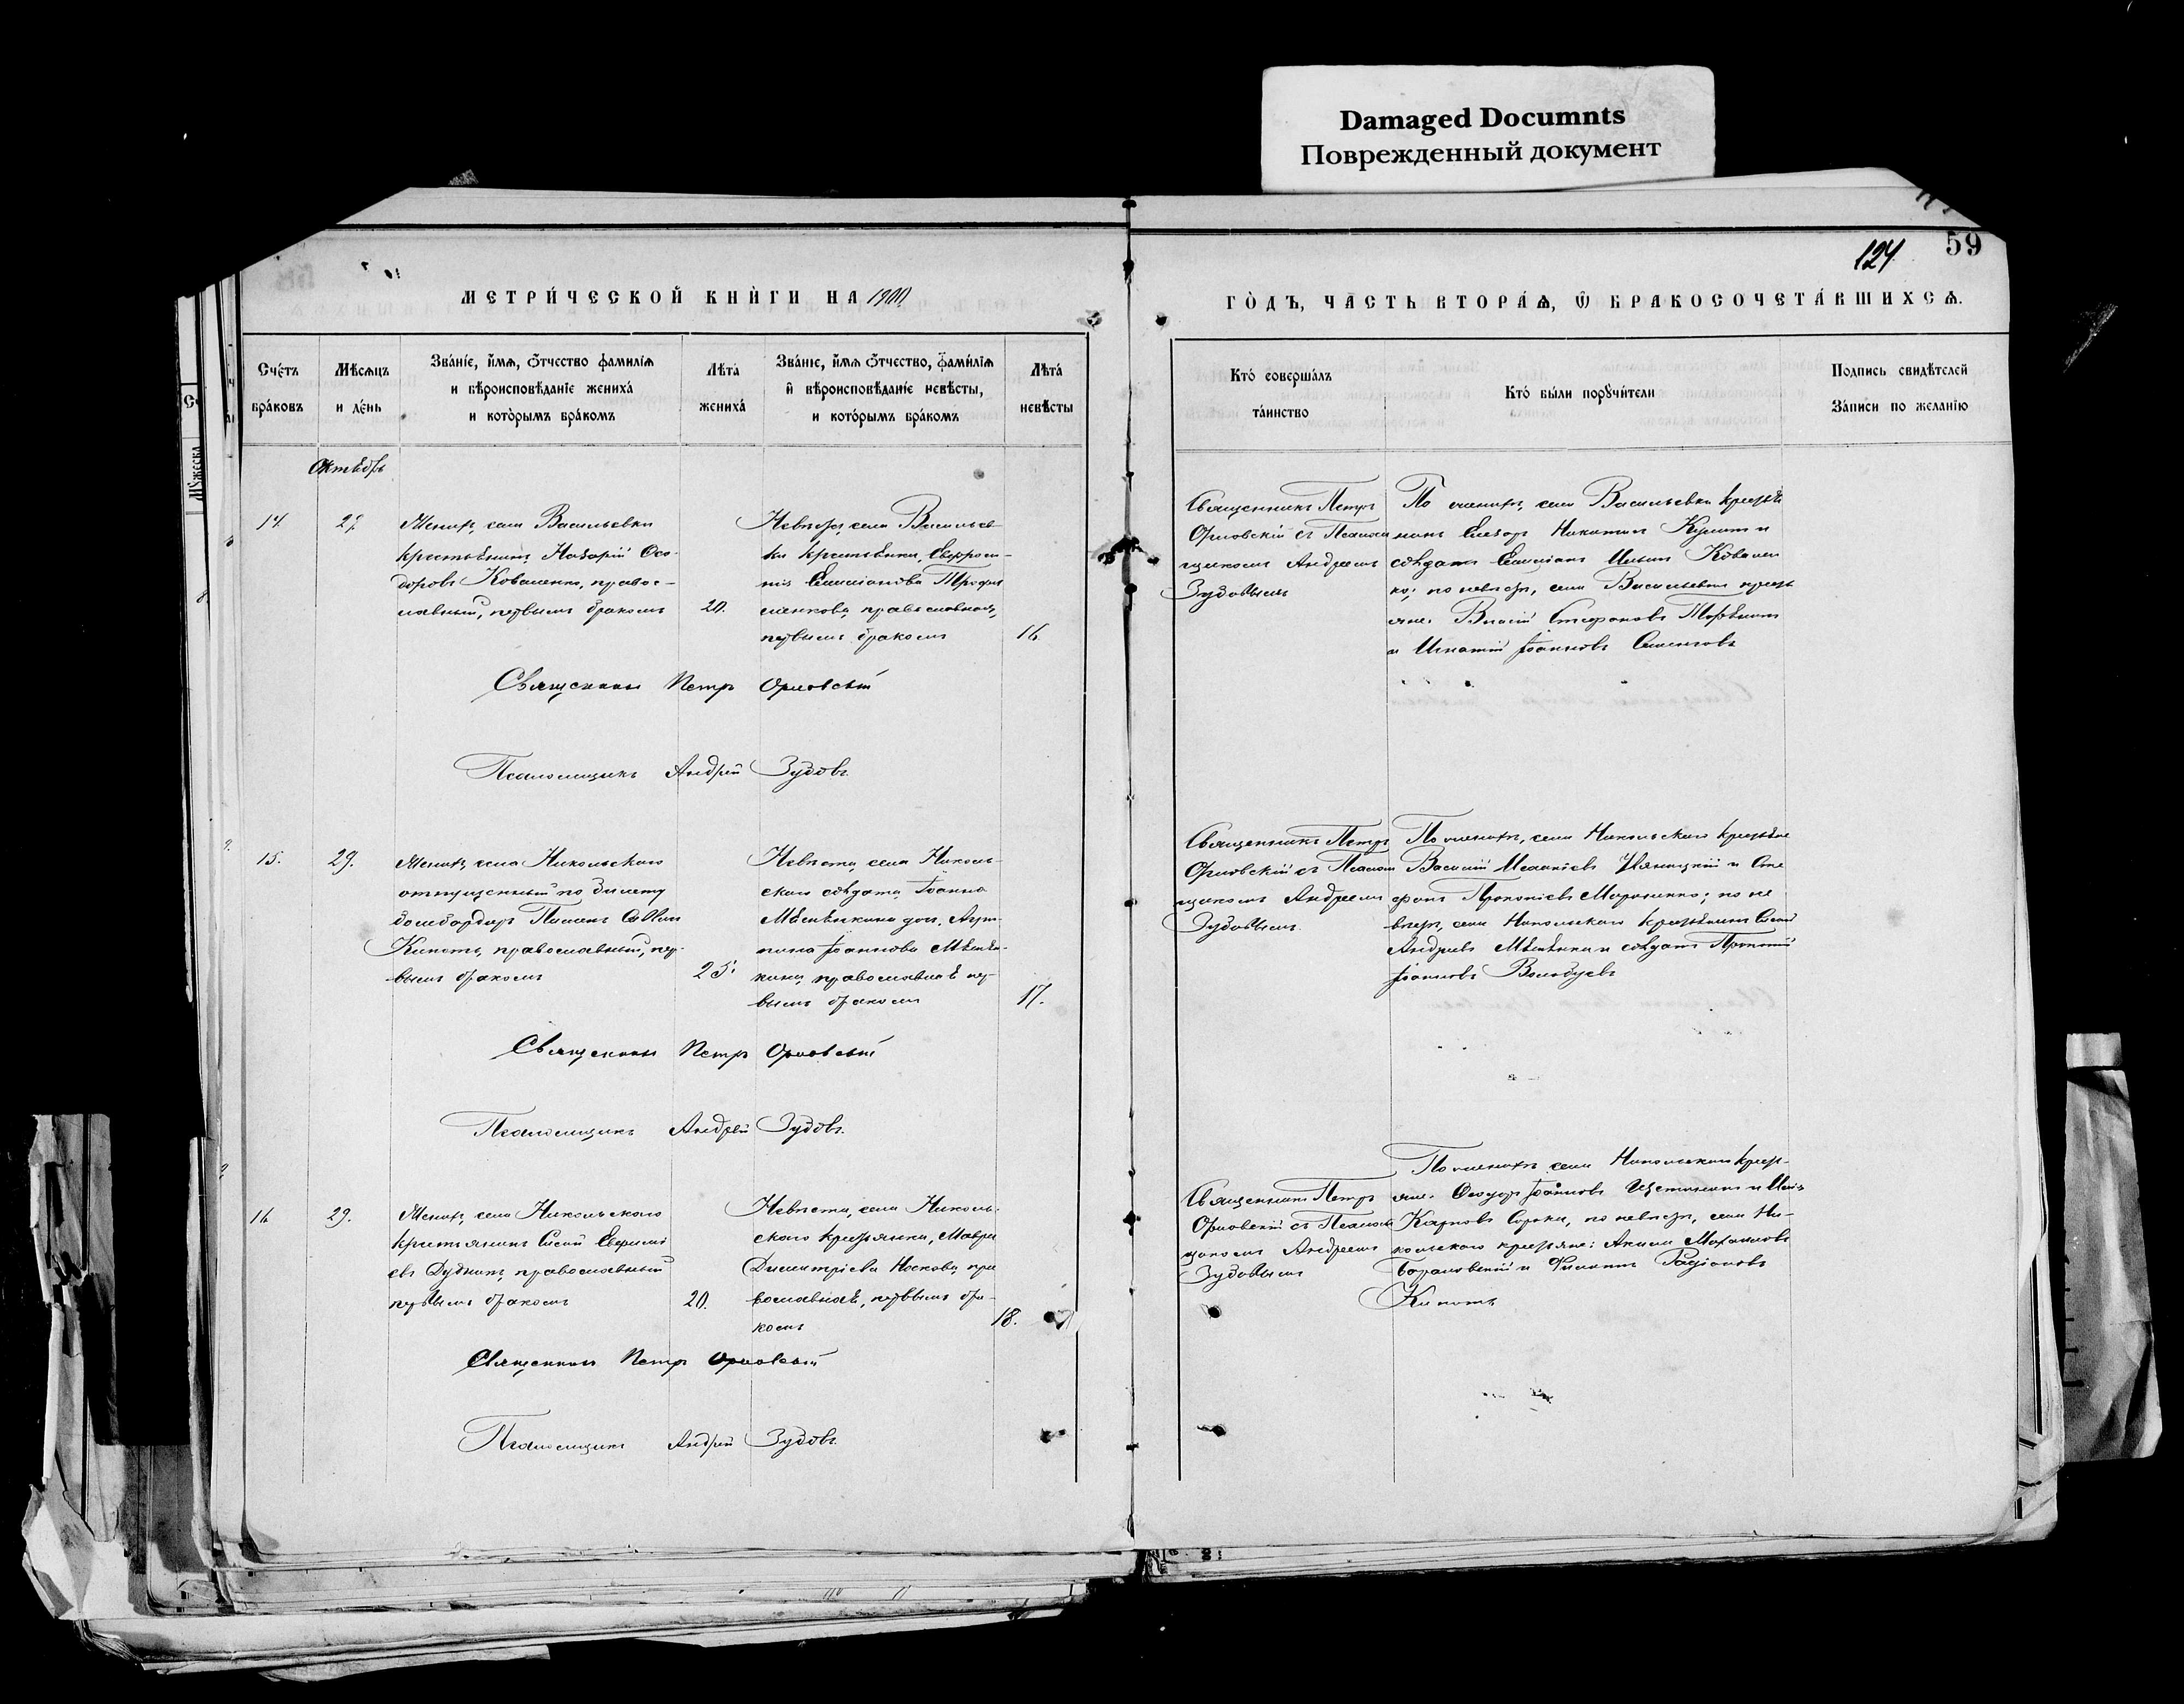 Damaged Documnts
Поврежденный документ
124
59
МЕТРИ́ЧЕСКОЙ КНИ́ГИ НА 1900
ГО́ДЪ, ЧА́СТЬ ВТОРА́Я, Ѿ БРАКОСОЧЕТА́ВШИХСѦ.
Сче́тъ
бра́ковъ
Мѣ́сѧцъ
и де́нь
Зва́нїе, и҆́мѧ, ѻ҆́тчество фамилїѧ
и вѣроисповѣ́данїе жениха́
и кото́рымъ бра́комъ
Лѣта́
жениха́
Зва́нїе, и҆́мѧ ѻ҆́тчество, фами́лїѧ
и҆ вѣроисповѣ́данїе невѣ́сты,
и кото́рымъ бра́комъ
Лѣта́
невѣ́сты
Кто́ соверша́лъ
та́инство
Кто́ бы́ли порꙋчи́тели
Подпись свидѣ́телей
За́писи по желанїю
Октябрь
14.
27.
Женихъ, села Васильевки
крестьянинъ Назарій Ѳео-
доровъ Коваленко, правос-
лавный, первымъ бракомъ
20.
Невѣста, села Васильев-
ки крестьянка, Евфроси-
нія Емиліанова Трофи
менкова, православная,
первымъ бракомъ
16.
Священникъ Петръ
Орловскій съ Псаломи
щикомъ Андреемъ
Зудовымъ
По женихѣ, села Васильевки крестья
нинъ Никитинъ и
солдатъ Емиліанъ Ильинъ Ковален
ко; по невѣстѣ, села Васильевки крестья
яне: Власій Стефановъ
и Игнатій Іоанновъ
Священникъ Петръ Орловскій
Псаломщикъ Андрей Зудовъ.
15.
29.
Женихъ, села Никольскаго
отпущенный по билету
бомбардиръ Пименъ Саввинъ
Кипоть, православный, пер-
вымъ бракомъ
25.
Невѣста, села Николь-
скаго солдата Іоанна
дочь, Агрип
пина Іоаннова
православная пер-
вымъ бракомъ
17.
Священникъ Петръ
Орловскій съ Псаломи
щикомъ Андреемъ
Зудовымъ.
По женихѣ, села Никольскаго крестьяне
Василій и Сте
фанъ Прокопіевъ Мироненко; по не
вѣстѣ, села Никольскаго крестьянинъ Сисой
Андреевъ и солдатъ
Іоанновъ Волобуевъ
Священникъ Петръ Орловскій
Псаломщикъ Андрей Зудовъ.
16.
29.
Женихъ, села Никольскаго
крестьянинъ Сисой Евфиміі
евъ Дудникъ, православный
первымъ бракомъ
20.
Невѣста, села Николь-
скаго крестьянка, Мавра
Димитріева Носкова, пра
вославная, первымъ бра-
комъ
18.
Священникъ Петръ
Орловскій съ Псаломи
щикомъ Андреемъ
Зудовымъ
По женихѣ села Никольскаго крест-
яне: Ѳеодоръ Іоанновъ Щетининъ и
Карповъ Сорока, по невѣстѣ, села Ни-
кольскаго крестьяне: Акимъ Михаиловъ
Барановскій и Филиппъ Радіоновъ
Кипоть
Священникъ Петръ Орловскій
Псаломщикъ Андрей Зудовъ.